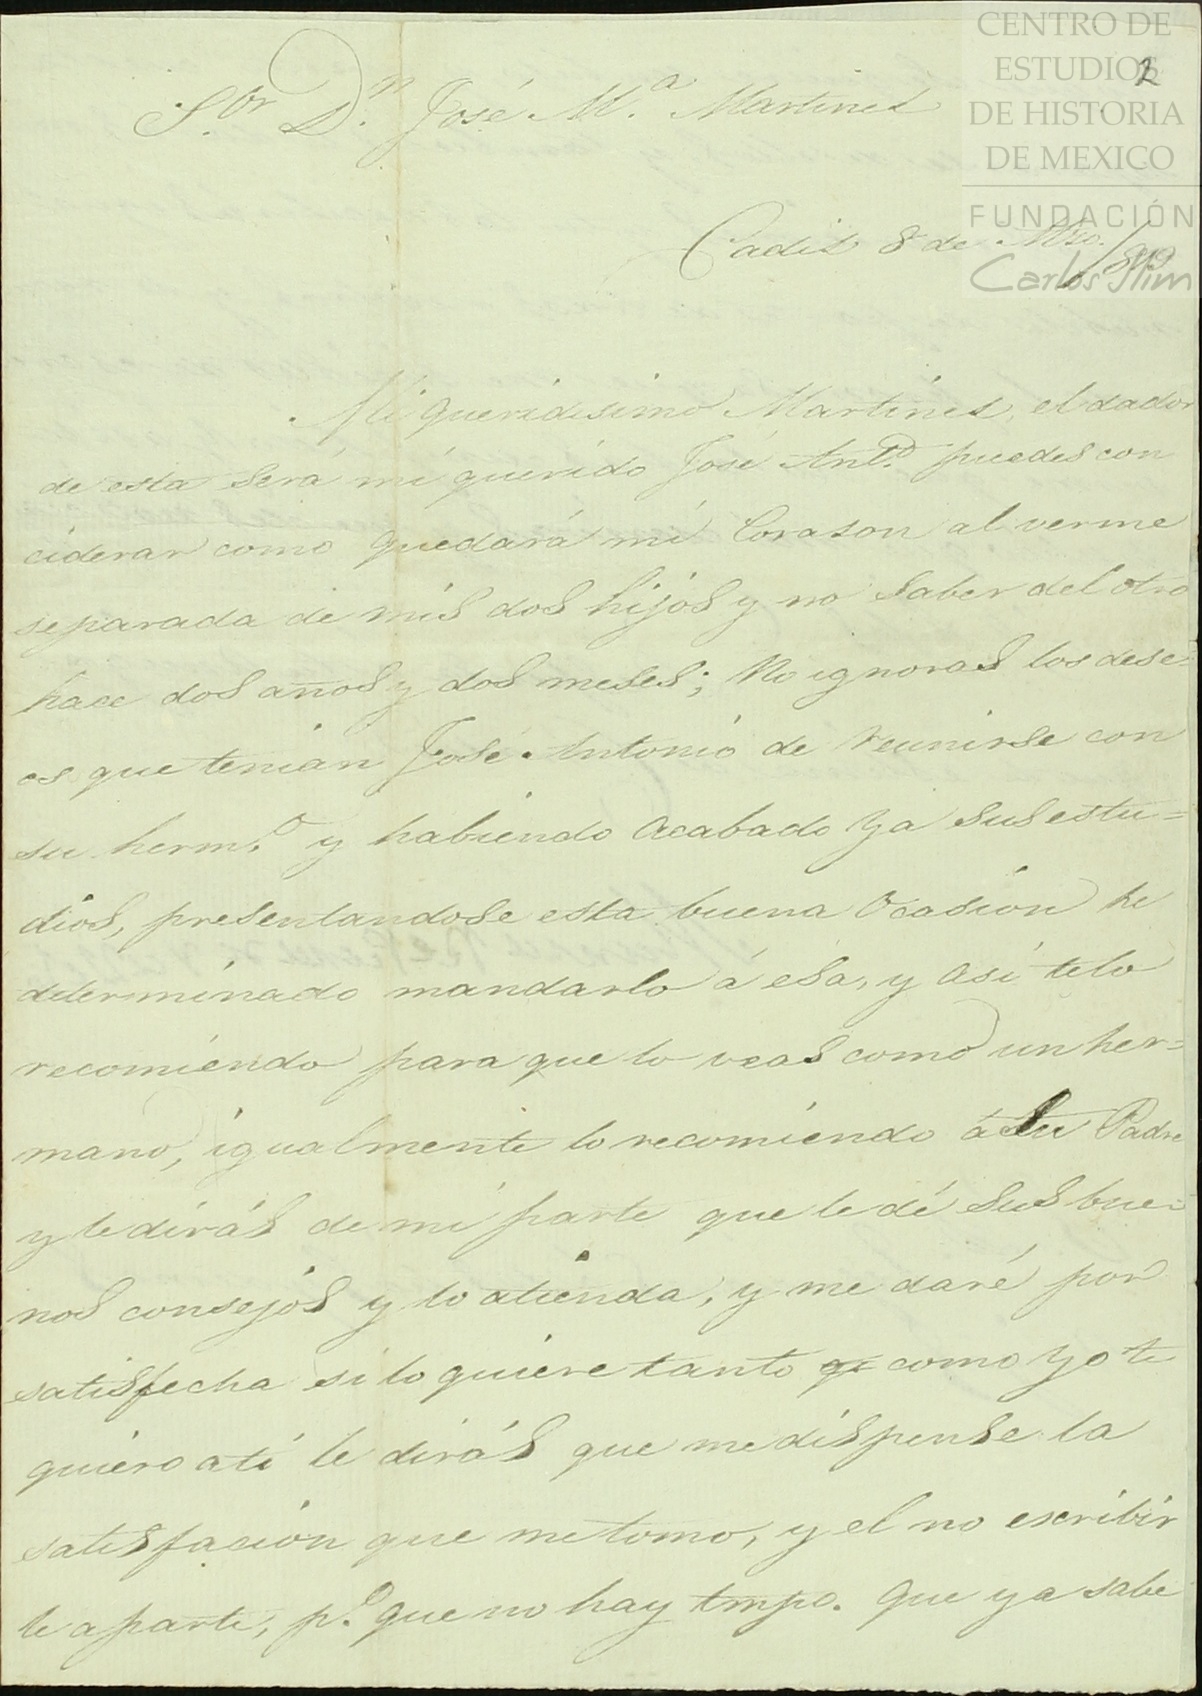 CENTRO DE
ESTUDIOS
DE HISTORIA
DE MEXICO
FUNDACIÓN
Carlos Slim
2
S.or D.n José M.a Martines
Cadis 8 de Mzo./849
Mi queridisimo Martines, el dador
de esta será mi querido José Ant.o puedes con
ciderar como quedará mi Corason al verme
separada de mis dos hijos y no saber del otro
hace dos años y dos meses; No ignoras los dese-
os que tenian José Antonio de reunirse con
su herm.o y habiendo acabado ya sus estu=
dios, presentandose esta buena Ocasion he
determinado mandarlo á esa, y asi te lo
recomiendo para que lo veas como un her=
mano, igualmente lo recomiendo á tu Padre
y le dirás de mi parte que le dé sus bue-
nos consejos y lo atienda, y me daré por
satisfecha si lo quiere tanto qe como yo te
quiero a ti le dirás que me dispense la
satisfasion que me tomo, y el no escribir
le aparte, p.o que no hay tmpo. Que ya sabe